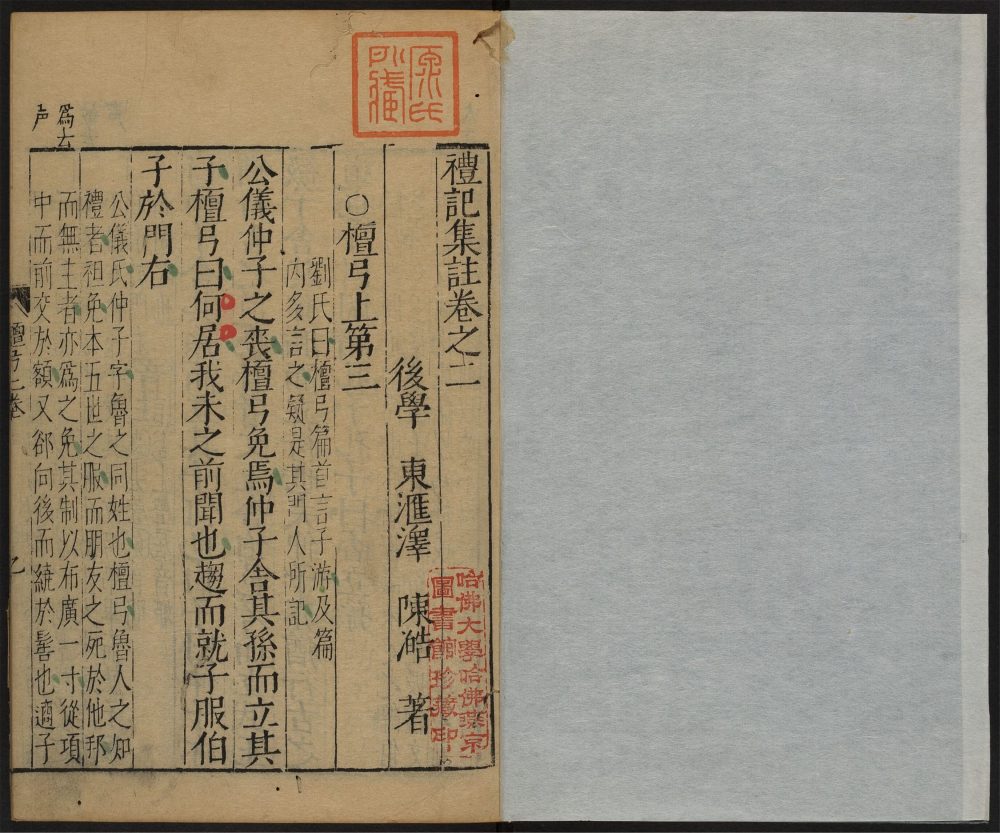 禮記集註卷之二
後學 東滙澤 陳澔 著
○檀弓上第三
劉氏曰檀弓篇首言子游及篇
內多言之疑是其門人所記
公儀仲子之喪檀弓免焉仲子舍其孫而立其
子檀弓曰何居我未之前聞也趨而就子服伯
子於門右
公儀氏仲子字魯之同姓也檀弓魯人之知
禮者袒免本五世之服而朋友之死於他邦
而無主者亦爲之免其制以布廣一寸從項
中而前交於額又郤向後而繞於髻也適子
爲去
声
檀弓上卷
哈佛大學哈佛燕京
圖書館珍藏印